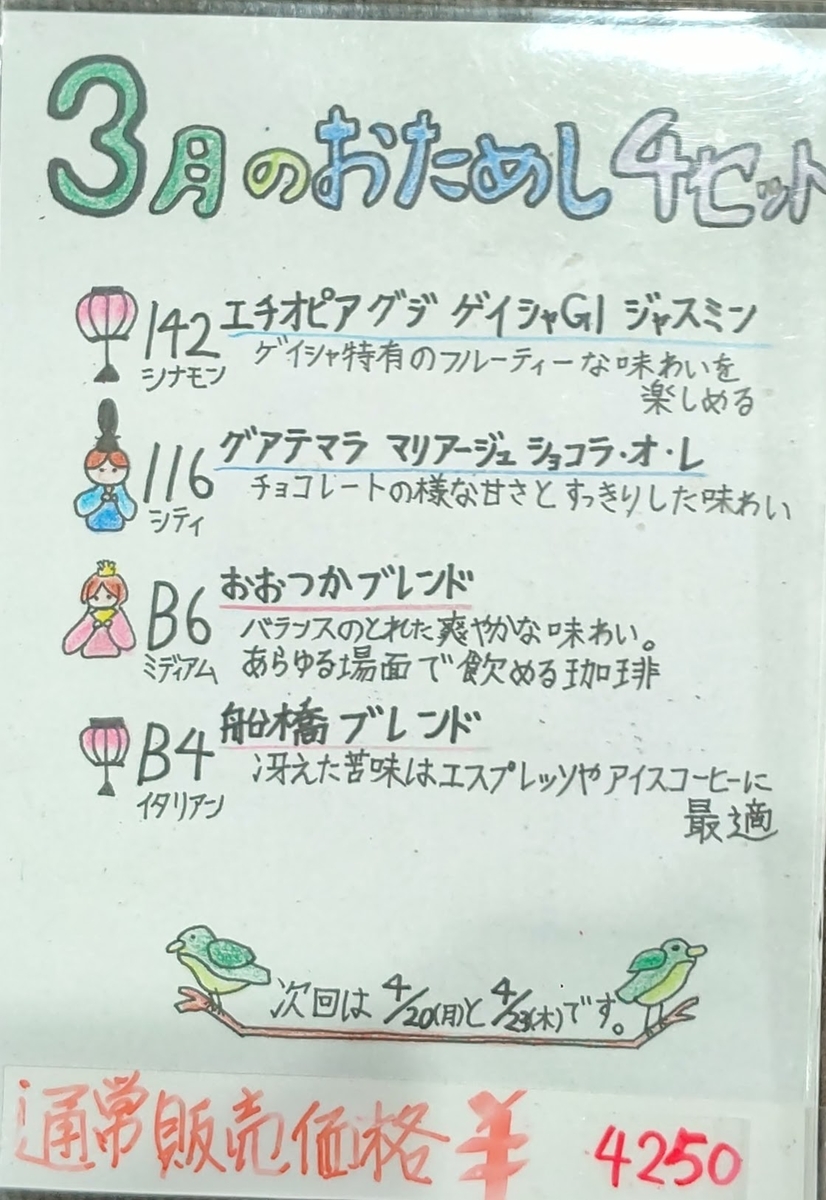 3月のおためし4セット
142 エチオピア グジ ゲイシャG1 ジャスミン
シナモン ゲイシャ特有のフルーティーな味わいを
楽しめる
116 グアテマラ マリアージュ ショコラ・オ・レ
シティ チョコレートの様な甘さとすっきりした味わい
B6 おおつかブレンド
ミディアム バランスのとれた爽やかな味わい。
あらゆる場面で飲める珈琲
B4 船橋ブレンド
イタリアン 冴えた苦味はエスプレッソやアイスコーヒーに
最適
次回は 4/20(月)と 4/23(木)です。
通常販売価格 ¥ 4250